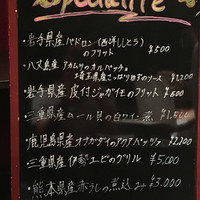 Spécialité
・岩手県産パドロン(西洋ししとう)
のフリット ¥500
・八丈島産 アカムツのカルパッチョ
埼玉県産さっぱり田子のソース ¥2,200
・岩手県産 皮付ジャガイモのフリット
・三重県産ムール貝の白ワイン蒸 ¥1,500
・鹿児島県産オナガダイのアクアパッツァ ¥2,200
・三重県産伊勢エビのグリル ¥5,000
・熊本県産赤うしの煮込み ¥3,000